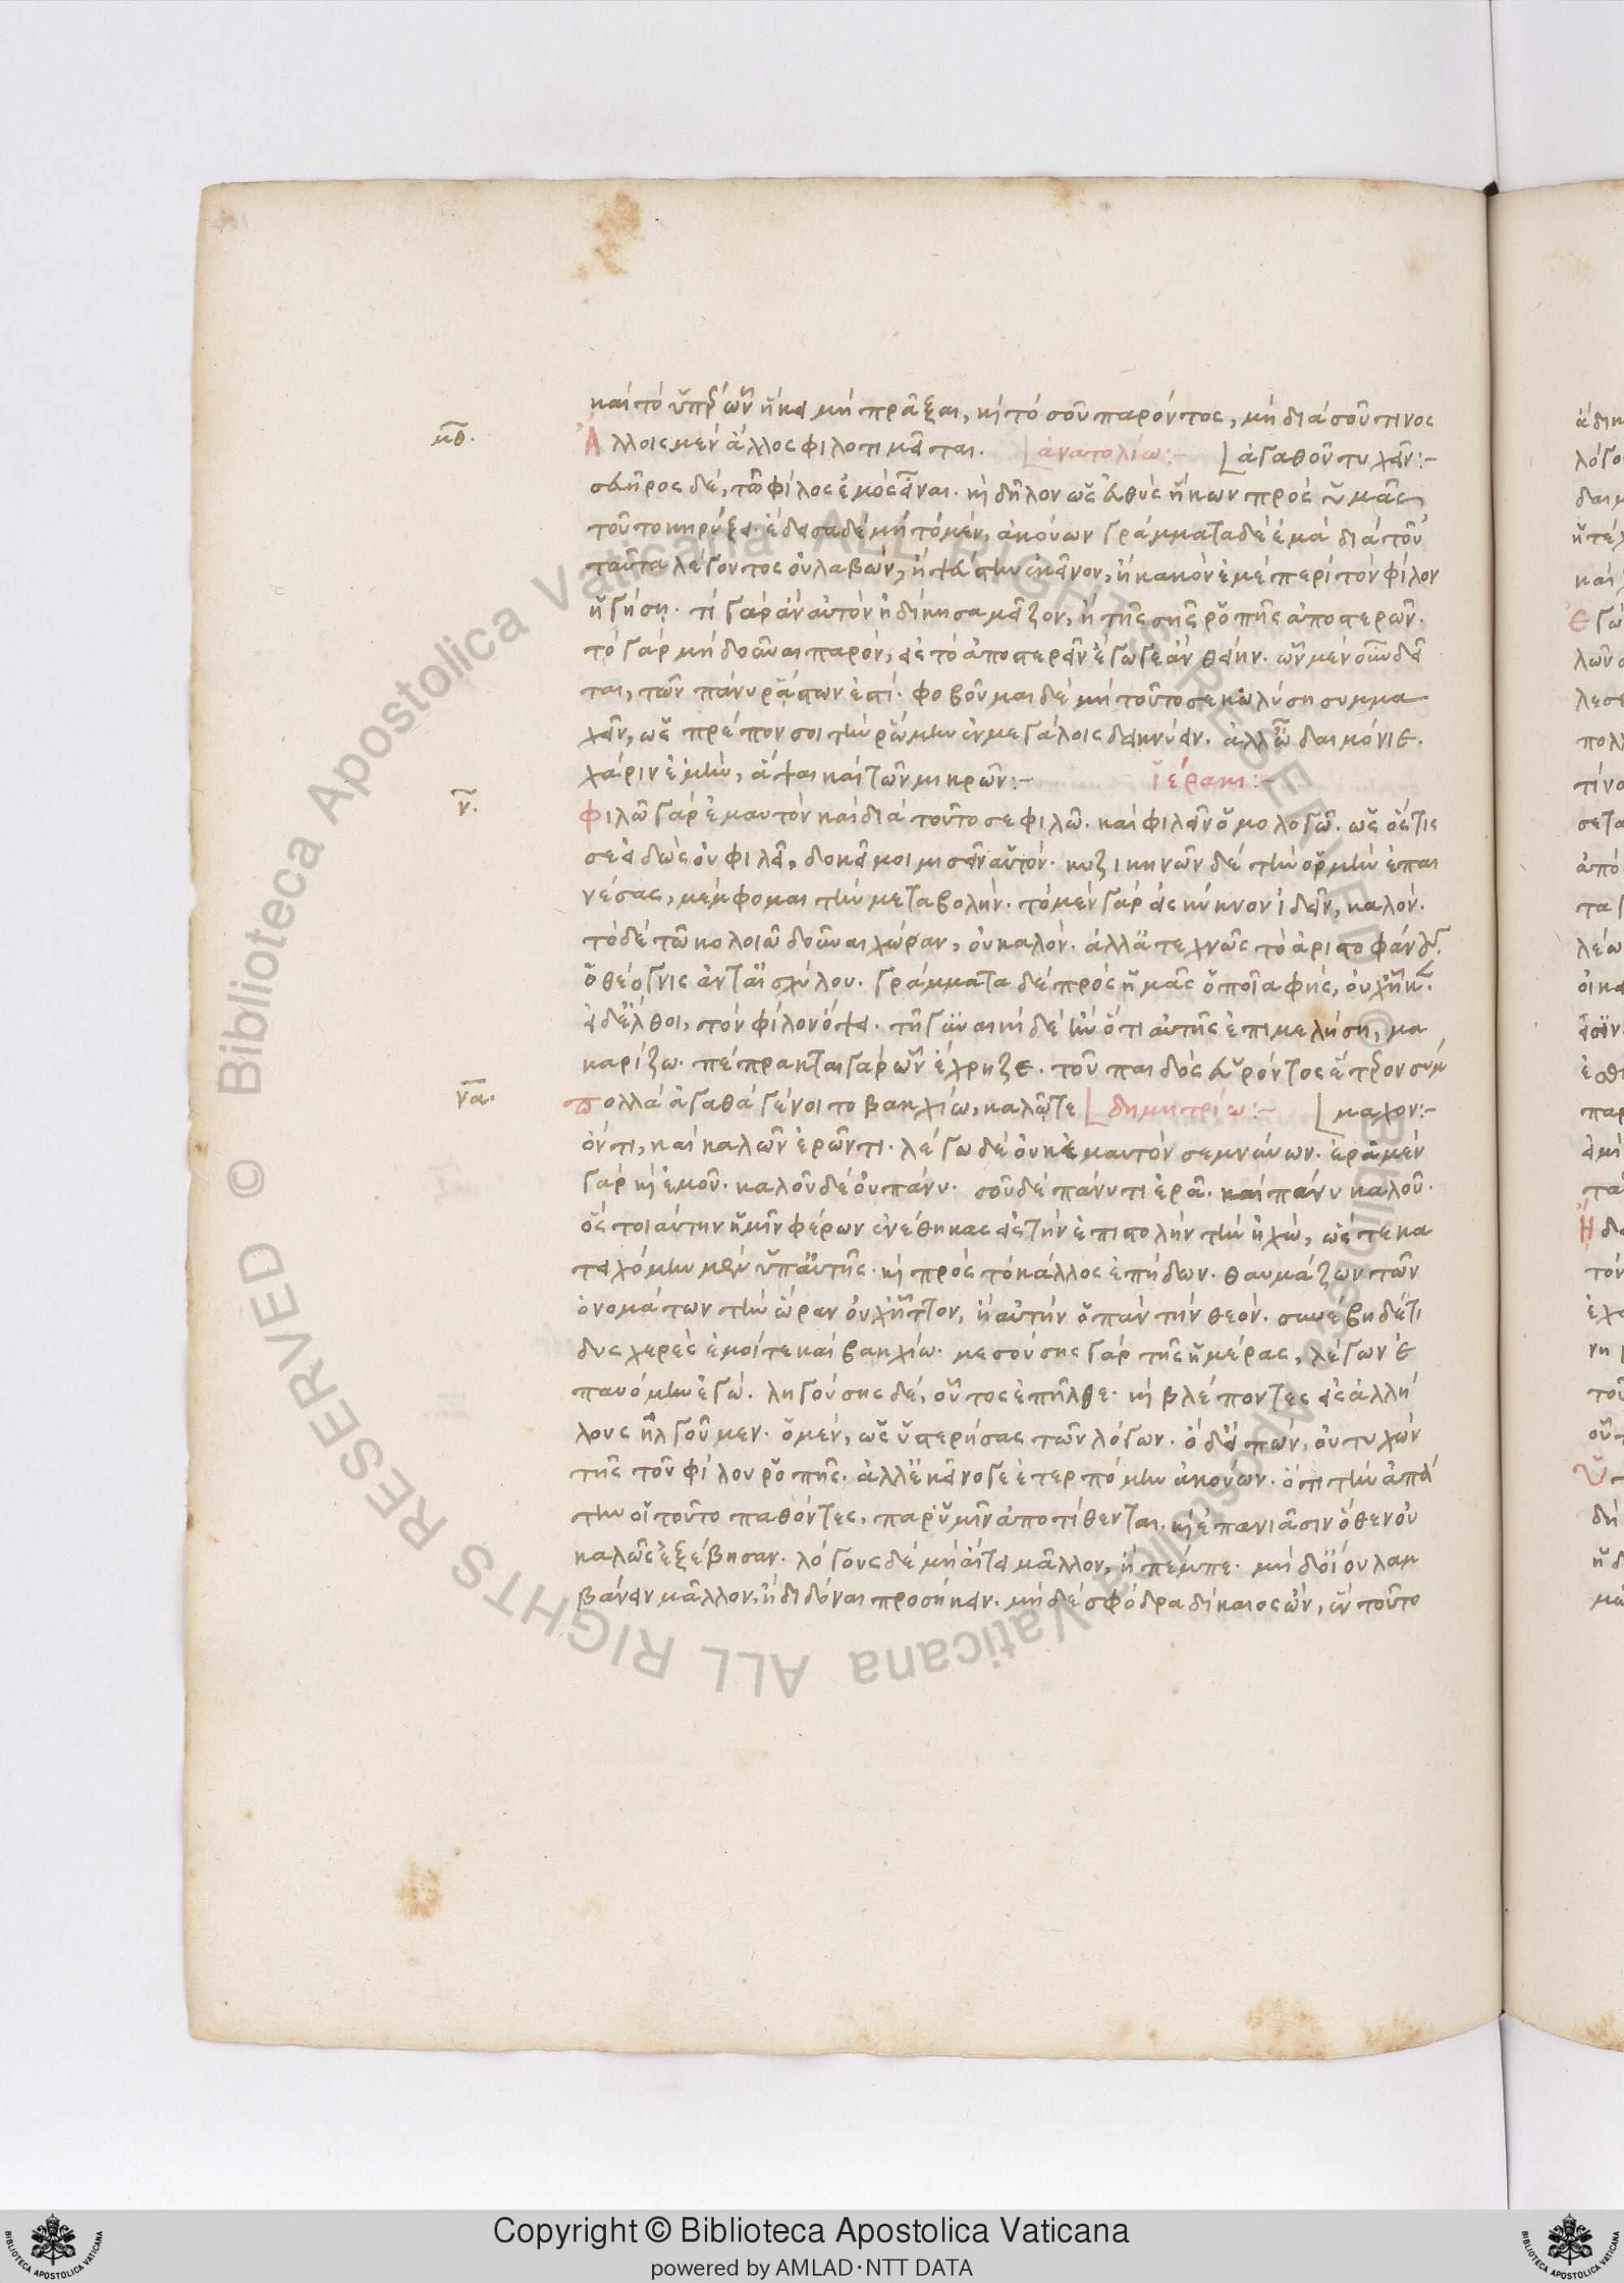 καὶ τὸ ὑπὲρ ὧν ἧκε μὴ πρᾶξαι, κὶ τὸ σοῦ παρόντος, μὴ διὰ σοῦ τινος
μθ.
Ἄλλοις μὲν ἄλλος φιλοτιμεῖται. ἀνατολίω:- ἀγαθοῦ τυχεῖν:-
σεβῆρος δὲ, τῶ φίλος ἐμὸς εἶναι. κὶ δῆλον ὡς εὐθὺς ἥκων πρὸς ὑμᾶς
τοῦτο κηρύξει. ἔδεισα δὲ μὴ τὸ μὲν, ἀκούων γράμματα δὲ ἐμὰ διὰ τοῦ
ταῦτα λέγοντος οὐ λαβὼν, ἢ ψεύστην ἐκεῖνον, ἢ κακὸν ἐμὲ περὶ τὸν φίλον
ἡγήση. τί γὰρ ἂν αὐτὸν ἠδίκησα μεῖζον, ἢ τῆς σῆς ῥοπῆς ἀποστερῶν.
τὸ γὰρ μὴ δοῦναι παρὸν, εἰς τὸ ἀποστερεῖν ἔγωγε ἂν θείην. ὧν μὲν οὖν δεῖ
ται, τῶν πάνυ ῥάστων ἐστί. φοβοῦμαι δὲ μὴ τοῦτό σε κωλύση συμμα
χεῖν, ὡς πρέπον σοι τὴν ῥώμην ἐν μεγάλοις δεικνύειν. ἀλλ' ὦ δαιμόνιε.
χάριν ἐμὴν, ἅψαι καὶ τῶν μικρῶν:- ἱέρακι:-
ν.
Φιλῶ γὰρ ἐμαυτὸν καὶ διὰ τοῦτο σε φιλῶ. καὶ φιλεῖν ὁμολογῶ. ὡς ὅστις
σε εἰδὼς οὐ φιλεῖ, δοκεῖ μοι μισεῖν αὑτόν. κυζικηνῶν δὲ τὴν ὁρμὴν ἐπαι
νέσας, μέμφομαι τὴν μεταβολήν. τὸ μὲν γὰρ εἰς κύκνον ἰδεῖν, καλόν.
τὸ δὲ τῶ κολοιῶ δοῦναι χώραν, οὐ καλόν. ἀλλ' ἀτεχνῶς τὸ ἀριστοφάν
ὁ θέογνις ἀντ' αἰσχύλου. γράμματα δὲ πρὸς ἡμᾶς ὁποῖα φὴς, οὐχ ἧκ.
εἰ δ' ἔλθοι, τὸν φίλον ὄψει. τῆ γυναικὶ δὲ ἣν ὅτι αὐτῆς ἐπιμελήση, μα
καρίζω. πέπρακται γὰρ ὧν ἔχρηζε. τοῦ παιδὸς εὑρόντος ἕτερον σύμ
να.
Πολλὰ ἀγαθὰ γένοιτο βακχίω, καλῶ τε δημητρίω:- μαχον:-
ὄντι, καὶ καλῶν ἐρῶντι. λέγω δὲ οὐκ ἐμαυτὸν σεμνύνων. ἐρᾶ μὲν
γὰρ κὶ ἐμοῦ. καλοῦ δὲ οὐ πάνυ. σοῦ δὲ πάνυ τι ἐρᾶ. καὶ πάνυ καλοῦ.
ὃς τοιαύτην ἡμῖν φέρων ἐνέθηκας εἰς τὴν ἐπιστολὴν τὴν ἠχὼ, ὥστε κα
τειχόμην μὲν ὑπ' αὐτῆς. κὶ πρὸς τὸ κάλλος ἐπήδων. θαυμάζων τῶν
ὀνομάτων τὴν ὥραν οὐχ ἧττον, ἢ αὐτὴν ὁ πὰν τὴν θεόν. συνέβη δέ τι
δυσχερὲς ἐμοί τε καὶ βακχίω. μεσούσης γὰρ τῆς ἡμέρας, λέγων ἐ
παυόμην ἐγώ. ληγούσης δὲ, οὗτος ἐπῆλθε. κὶ βλέποντες εἰς ἀλλή
λους ἠλγοῦμεν. ὁ μὲν, ὡς ὑστερήσας τῶν λόγων. ὁ δ' εἰπὼν, οὐ τυχὼν
τῆς τοῦ φίλου ῥοπῆς. ἀλλ' ἐκεῖνό γε ἐτερπόμην ἀκούων. ὅτι τὴν ἀπά
την οἱ τοῦτο παθόντες, παρ' ὑμῖν ἀποτίθενται. κὶ ἐπανίασιν ὅθεν οὐ
καλῶς ἐξέβησαν. λόγους δὲ μὴ αἴτει μᾶλλον, ἢ πέμπε. μὴ δ' οἵου λαμ
βάνειν μᾶλλον, ἢ διδόναι προσήκειν. μὴ δὲ σφόδρα δίκαιος ὢν, ἐν τοῦτο
Copyright © Biblioteca Apostolica Vaticana
powered by AMLAD・NTT DATA